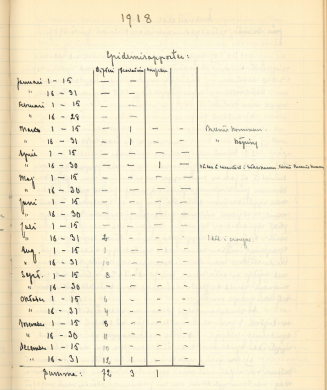 1918
Epidemirapporter:
Januari 1 - 15 — —
" 16 - 31 — —
Februari 1 - 15 — —
" 16 - 28 — —
Mars 1 - 15 — 1 — —
" 16 - 31 — 1 — — "
April 1 - 15 — — — —
" 16 - 30 — — 1 —
Maj 1 - 15 — — — —
" 16 - 30 — — — —
Juni 1 - 15 — — — —
" 16 - 30 — — — —
Juli 1 - 15 — — — —
" 16 - 31 — — — 1 fall i
Aug. 1 - 15 1 — — —
" 16 - 31 10 — — —
Sept. 1 - 15 8 — — —
" 16 - 30 — — — —
Oktober 1 - 15 6 — — —
" 16 - 31 4 — — —
November 1 - 15 8 — — —
" 16 - 30 11 — — —
December 1 - 15 10 — — —
" 16 - 31 12 1 — —
Summa: 72 3 1